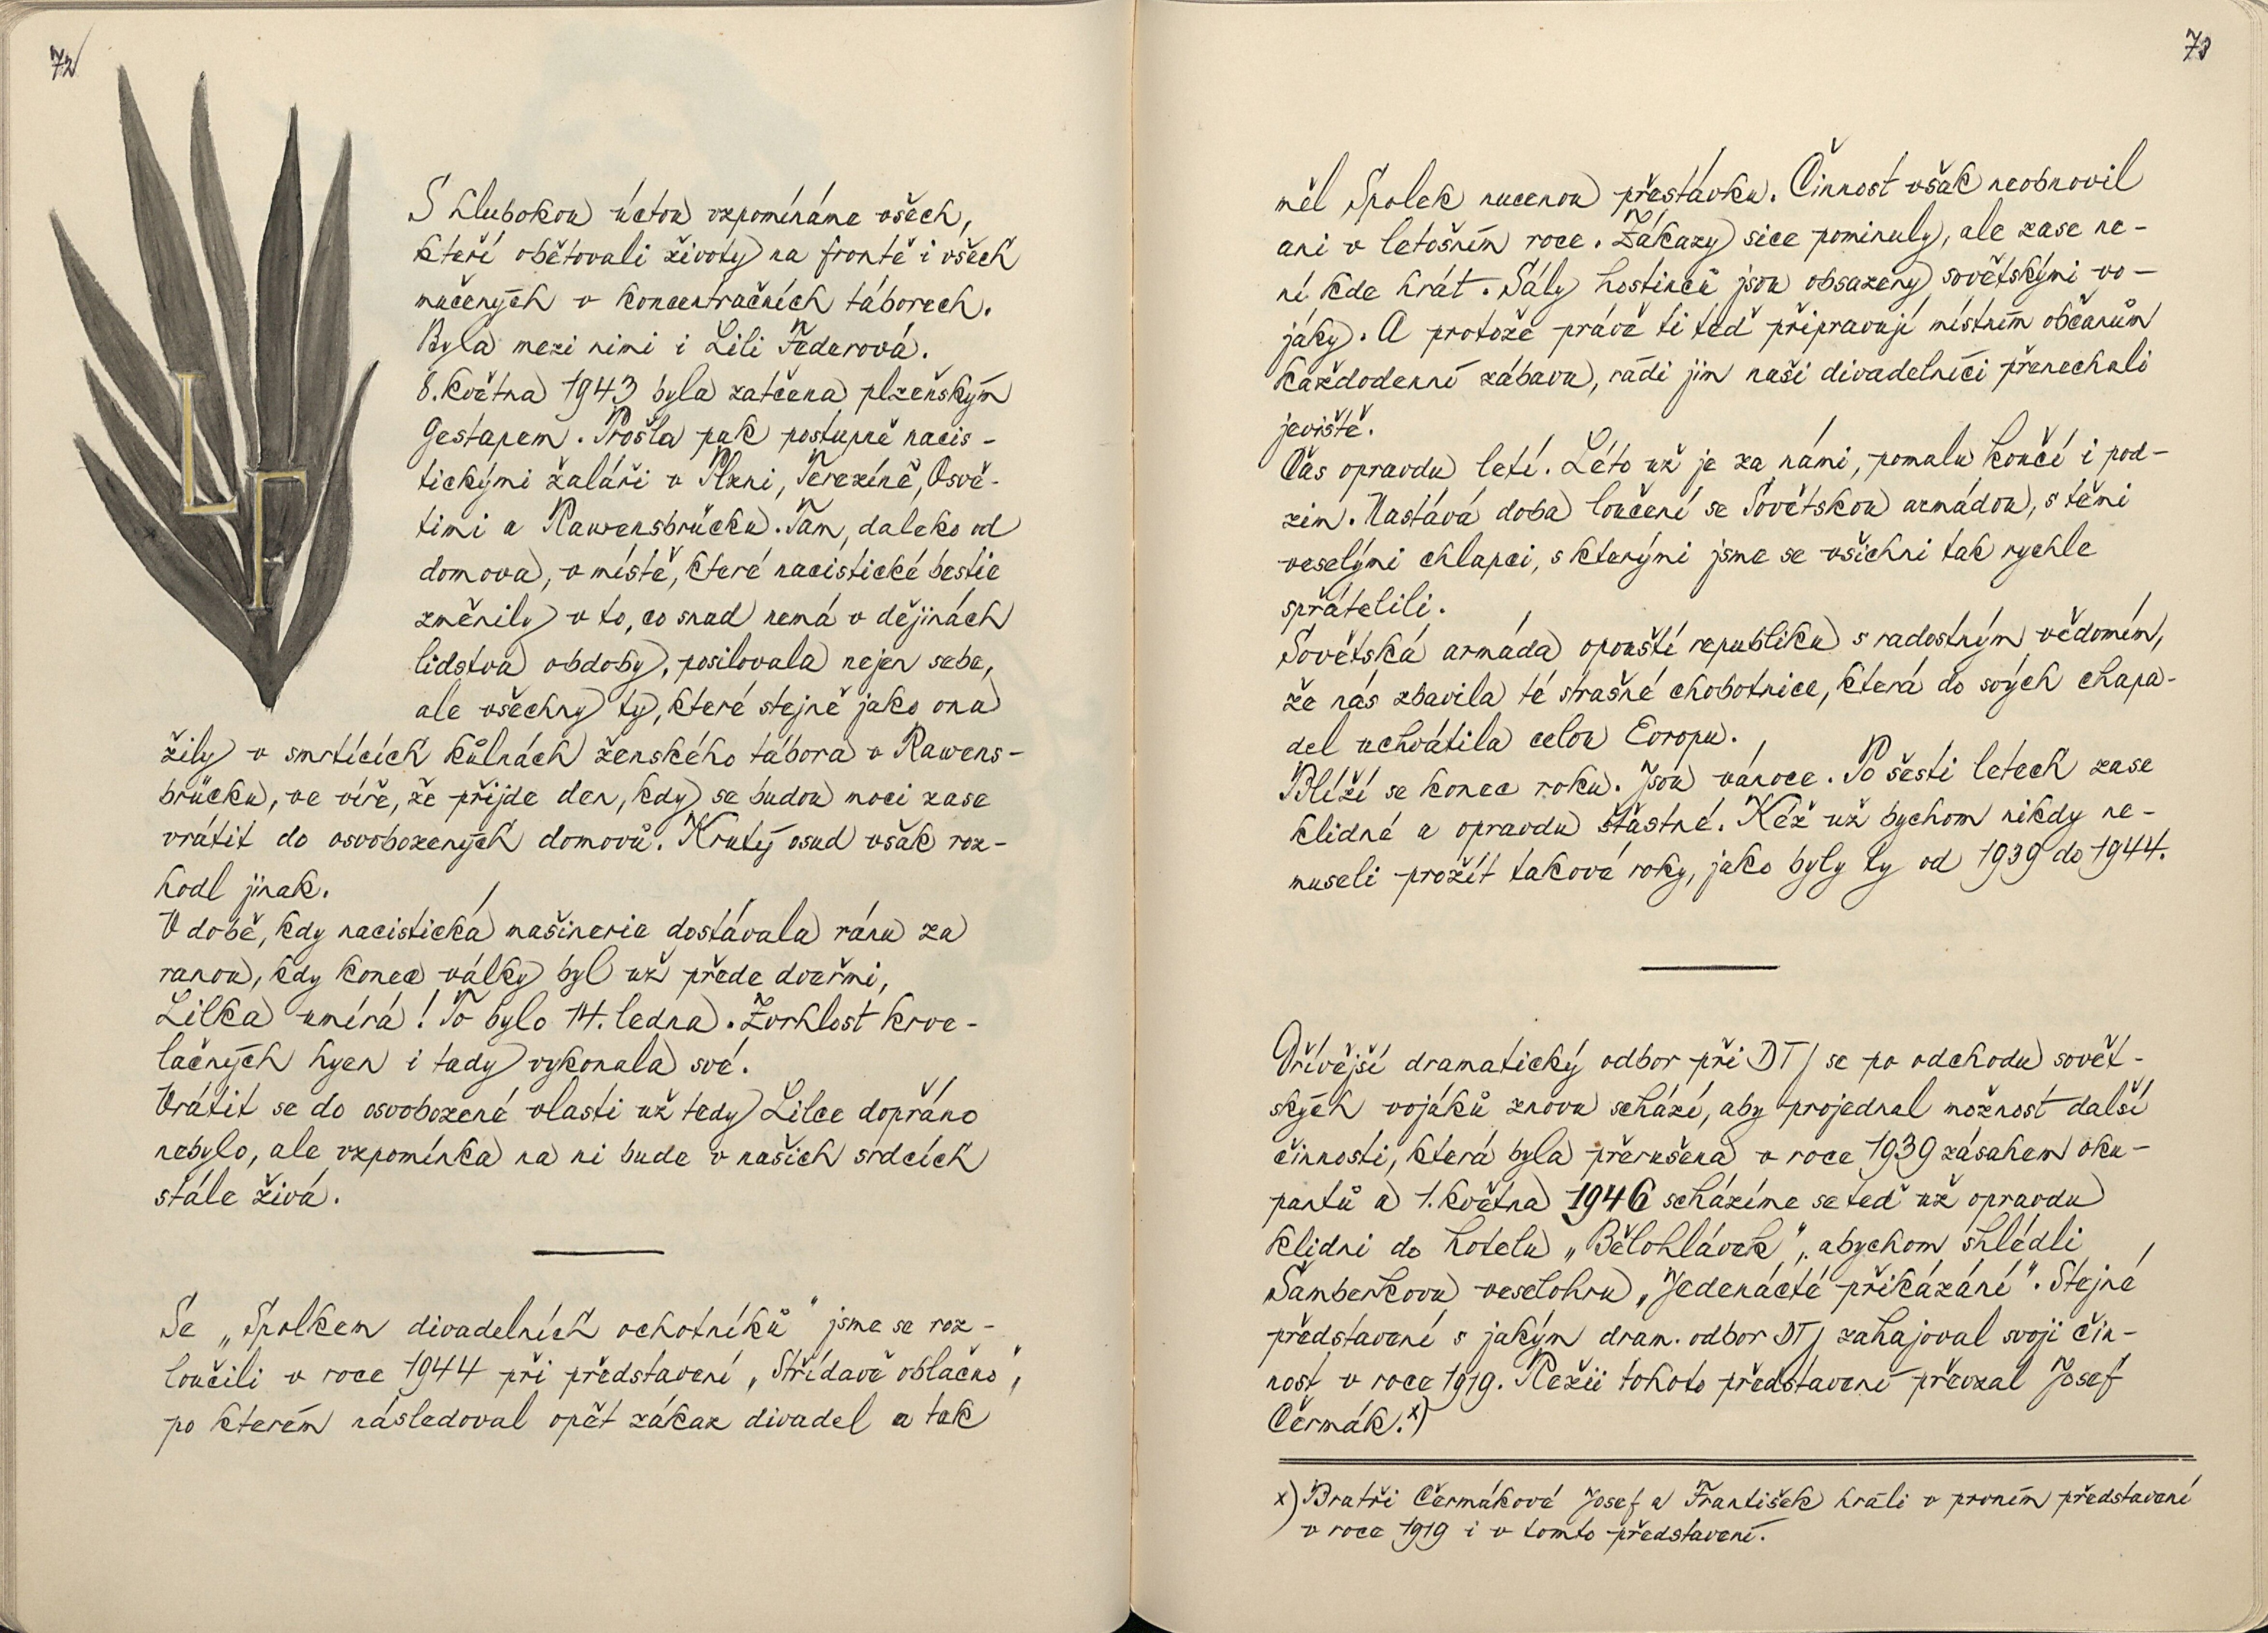 72
L F
S hlubokou úctou vzpomínáme všech,
kteří obětovali životy na frontě i všech
mučených v koncentračních táborech.
Byla mezi nimi i Lili Federová.
8. května 1943 byla zatčena plzeňským
Gestapem. Prošla pak postupně nacis-
tickými žaláři v Plzni, Terezíně, Osvě-
timi a Rawensbrücku. Tam, daleko od
domova, v místě, které nacistické bestie
změnily v to, co snad nemá v dějinách
lidstva obdoby, posilovala nejen sebe,
ale všechny ty, které stejně jako ona
žily v smrtících kůlnách ženského tábora v Rawens-
brücku, ve víře, že přijde den, kdy se budou moci zase
vrátit do osvobozených domovů. Krutý osud však roz-
hodl jinak.
V době, kdy nacistická mašinerie dostávala ránu za
ranou, kdy konec války byl už přede dveřmi,
Lilka umírá! To bylo 14. ledna. Zvrhlost krve-
lačných hyen i tady vykonala své.
Vrátit se do osvobozené vlasti už tedy Lilce dopřáno
nebylo, ale vzpomínka na ni bude v našich srdcích
stále živá.
Se „Spolkem divadelních ochotníků" jsme se roz-
loučili v roce 1944 při představení „Střídavě oblačno",
po kterém následoval opět zákaz divadel a tak
73
měl Spolek nucenou přestávku. Činnost však neobnovil
ani v letošním roce. Zákazy sice pominuly, ale zase ne-
ní kde hrát. Sály hostinců jsou obsazeny sovětskými vo-
jáky. A protože právě ti teď připravují místním občanům
každodenní zábavu, rádi jim naši divadelníci přenechali
jeviště.
Čas opravdu letí. Léto už je za námi, pomalu končí i pod-
zim. Nastává doba loučení se Sovětskou armádou, s těmi
veselými chlapci, s kterými jsme se všichni tak rychle
spřátelili.
Sovětská armáda opouští republiku s radostným vědomím,
že nás zbavila té strašné chobotnice, která do svých chapa-
del uchvátila celou Evropu.
Blíží se konec roku. Jsou vánoce. Po šesti letech zase
klidné a opravdu šťastné. Kéž už bychom nikdy ne-
museli prožít takové roky, jako byly ty od 1939 do 1944.
Dřívější dramatický odbor při DTJ se po odchodu sovět-
ských vojáků znovu schází, aby projednal možnost další
činnosti, která byla přerušena v roce 1939 zásahem oku-
pantů a 1. května 1946 scházíme se teď už opravdu
klidni do hotelu „Bělohlávek", abychom shlédli
Šamberkovu veselohru „Jedenácté přikázání". Stejné
představení s jakým dram. odbor DTJ zahajoval svoji čin-
nost v roce 1919. Režii tohoto představení převzal Josef
Čermák.x)
x) Bratři Čermákové Josef a František hráli v prvním představení
v roce 1919 i v tomto představení.